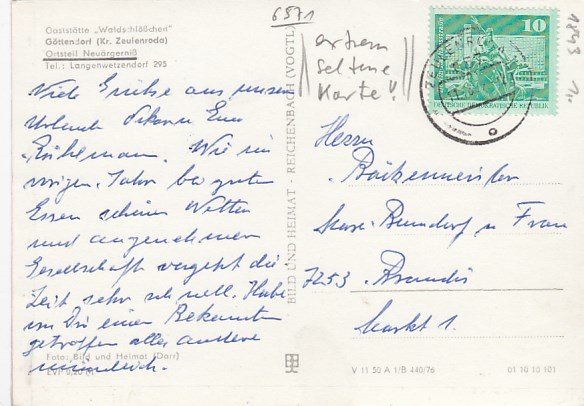 Gaststätte „Waldschlößchen"
Göttendorf (Kr. Zeulenroda)
Ortsteil Neuärgerniß
Tel.: Langenwetzendorf 295
Viele Grüße aus unserem
Urlaub
Wie im
vorigen Jahr bei guten
Essen schönen Wetter
und angenehmer
Gesellschaft vergeht die
Zeit sehr schnell. Habe
einen Bekannten
getroffen alles andere
mündlich.
Foto: Bild und Heimat (Darr)
EVP 0,20 M
BILD UND HEIMAT · REICHENBACH (VOGTL)
6571
extrem
seltene
Karte!
10
DEUTSCHE DEMOKRATISCHE REPUBLIK
ZEULENRODA
Herrn
Bäckermeister
und Frau
7253 Brandis
Markt 1.
V 11 50 A 1/B 440/76
01 10 10 101